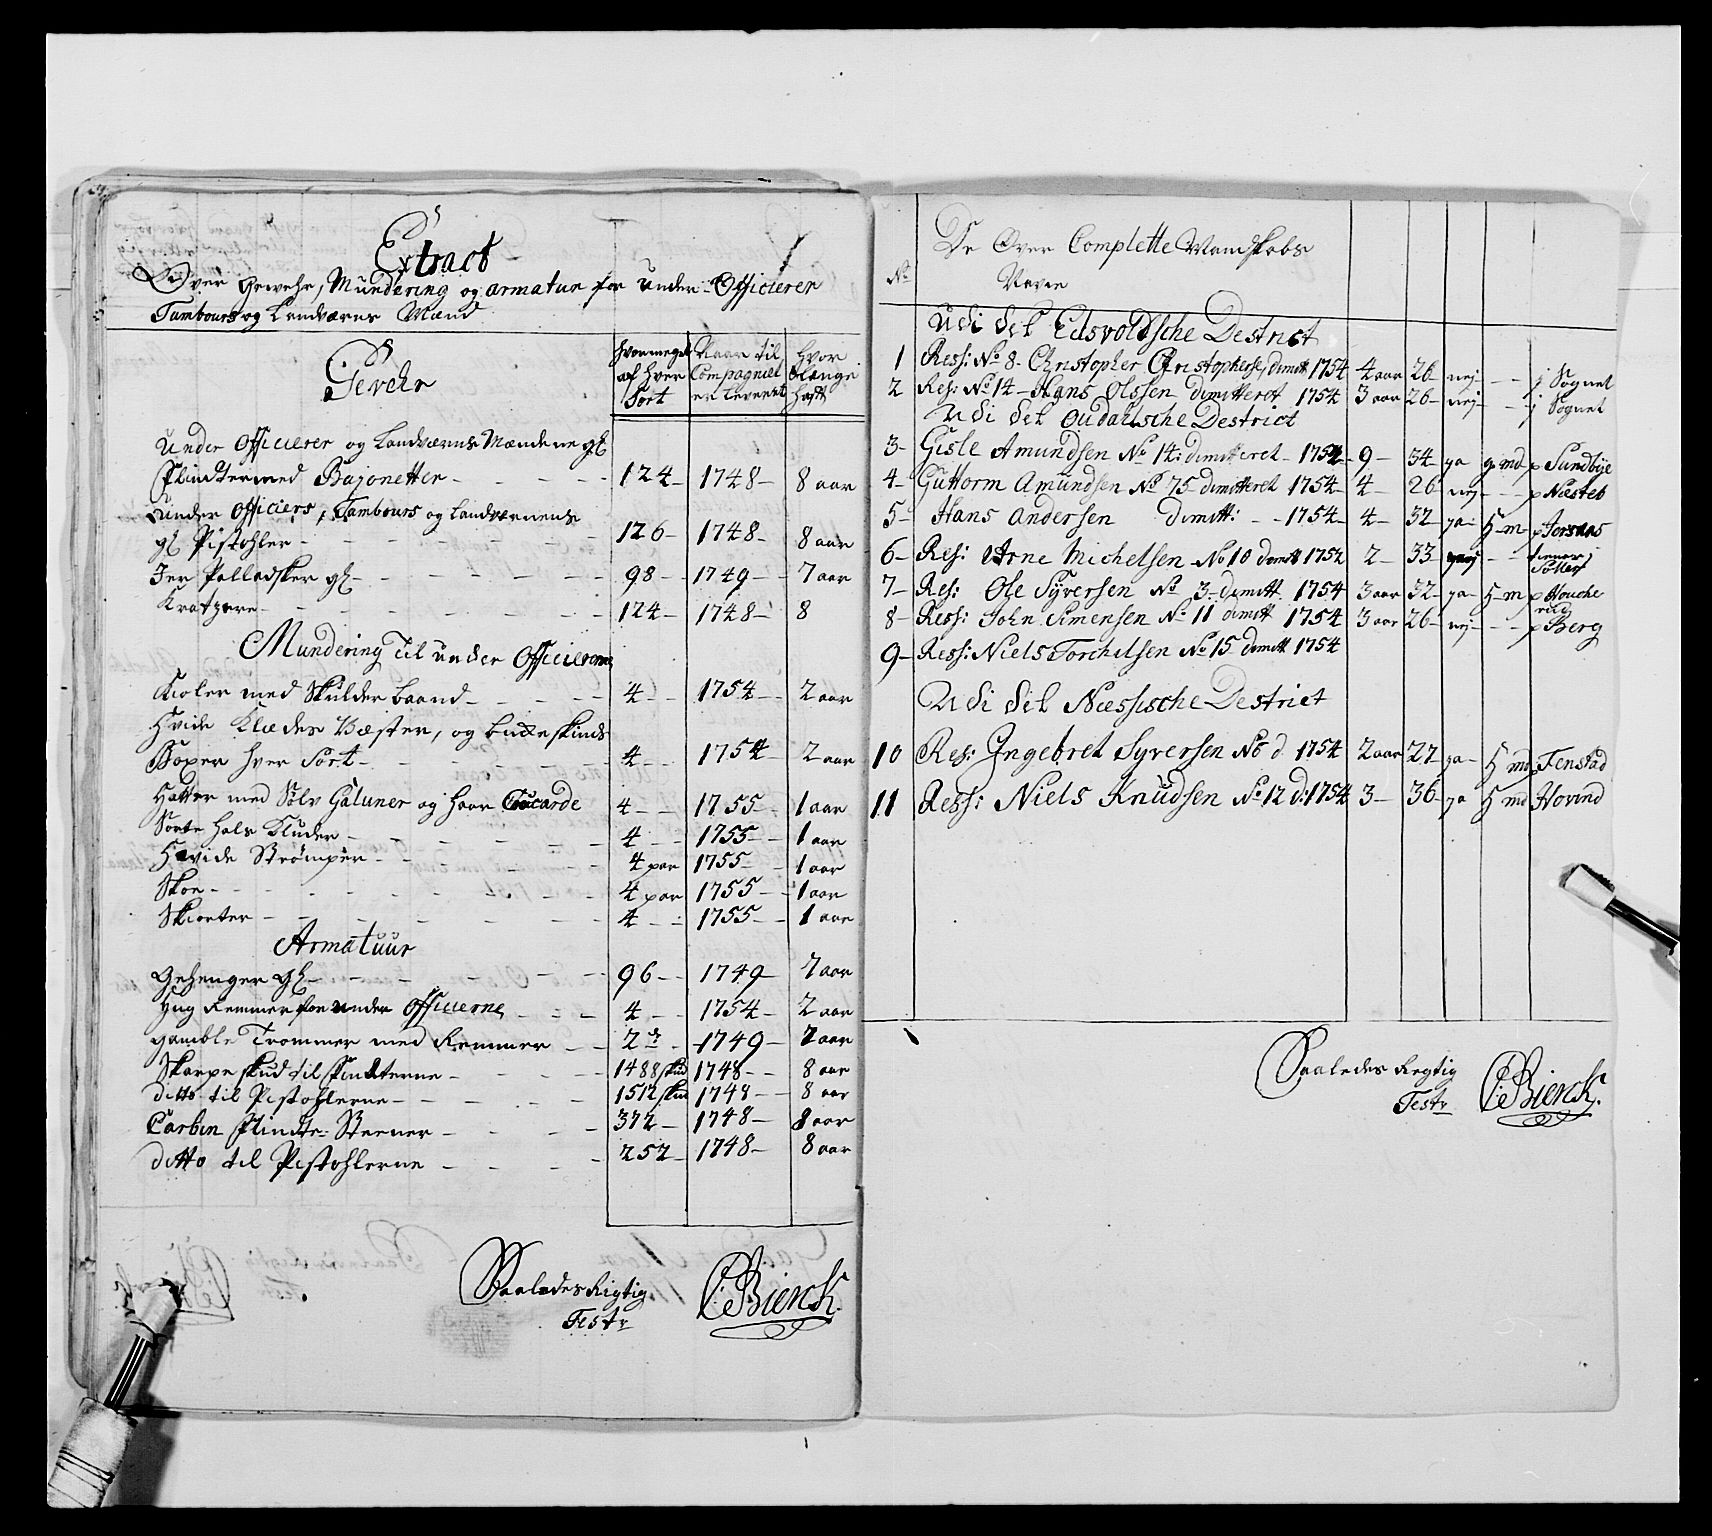 Extract
Over Gewehr, Mundering og armatur for under Officierer
Tambours og Landværns Mænd
Gevehr
Hvormeget af hver Sort
Naar til Compagniet er leveret
Hvor længe haft
Under Officierer og Landværns Mændene gl
Flindter med Bajonetter 124 1748 8 aar
Under Officiers, Tambours og Landværnens
gl Pistohler 126 1748 8 aar
Jer Palladsker gl 98 1749 7 aar
Kratzere 124 1748 8
Mundering til under Officiererne
Kioler med Skulder baand 4 1754 2 aar
Hvide Klædes Væster, og bukeskinds
Boxer hver Sort 4 1754 2 aar
Hatter med Sølv Galuner og haar Cocarde 4 1755 1 aar
Sorte hals Kluder 4 1755 1 aar
Hvide Strømper 4 par 1755 1 aar
Skoe 4 par 1755 1 aar
Skiorter 4 1755 1 aar
Armatuur
Gehenger gl 96 1749 7 aar
Hug Remmer for under Officiererne 4 1754 2 aar
gamble Trommer med Remmer 2 1749 7 aar
Skarpe skud til Flindterne 1488 skud 1748 8 aar
ditto til Pistohlerne 1512 skud 1748 8 aar
Carbin Flindte Steener 372 1748 8 aar
ditto til Pistohlerne 252 1748 8 aar
Saaledes Rigtig
Test
CBierch
No De Over Complette Mandskabs
Navne
Udi det Eidsvoldsche Destrict
1 Ress: No 8 Christopher Christophersen dimitt 1754 4 aar 26 nej j Sognet
2 Res: No 14 Hans Olssen dimitteret 1754 3 aar 26 nej j Sognet
Udi det Oudalsche Destrict
3 Gisle Amundsen No 14: dimitteret 1754 9 34 ja g md p Sundbye
4 Guttorm Amundsen No 75 dimitteret 1754 4 26 nej p Næsteb
5 Hans Andersen dimitt: 1754 4 32 ja H m p
6 Res: Arne Michelsen No 10 dimitt 1752 2 33 tiener j
7 Res: Ole Syversen No 3 dimitt 1754 3 aar 32 ja H m p Houche
rud
8 Ress: John Simensen No 11 dimitt 1754 3 aar 26 nej p Berg
9 Ress: Niels Torchelsen No 15 dimitt 1754
Udi det Næssische Destrict
10 Res: Ingebret Syversen No 6 d 1754 2 aar 27 ja H md Fenstad
11 Ress: Niels Knudsen No 12 d: 1754 3 36 ja H md Hovind
Saaledes Rigtig
Test
CBierch